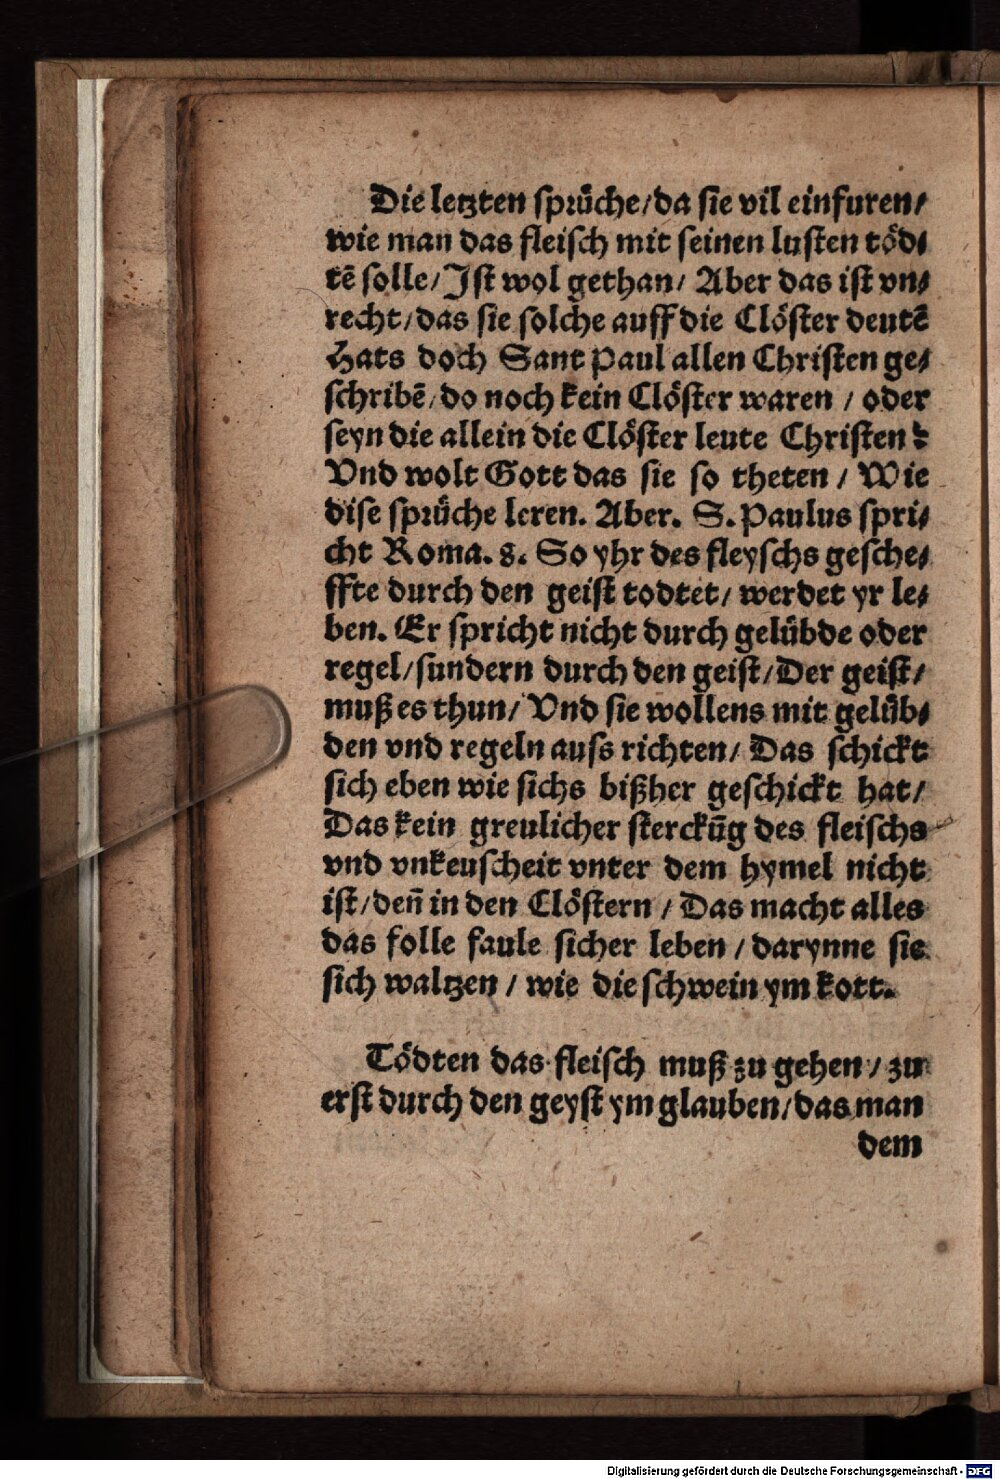 Die letzten sprüche/da sie vil einfuren/
wie man das fleisch mit seinen lusten töd⸗
tē solle/Ist wol gethan/ Aber das ist vn⸗
recht/das sie solche auff die Clöster deutē
Hats doch Sant Paul allen Christen ge⸗
schribē/do noch kein Clöster waren / oder
seyn die allein die Clöster leute Christen?
Vnd wolt Gott das sie so theten / Wie
dise sprüche leren. Aber. S. Paulus spri⸗
cht Roma. 8. So yhr des fleyschs gesche⸗
ffte durch den geist todtet/ werdet yr le⸗
ben. Er spricht nicht durch gelübde oder
regel/sundern durch den geist/Der geist/
muß es thun/ Vnd sie wollens mit gelüb⸗
den vnd regeln auss richten/ Das schickt
sich eben wie sichs bißher geschickt hat/
Das kein greulicher sterckūg des fleischs
vnd vnkeuscheit vnter dem hymel nicht
ist/den̄ in den Clöstern / Das macht alles
das folle faule sicher leben / darynne sie
sich waltzen / wie die schwein ym kott.
Tödten das fleisch muß zu gehen / zu
erst durch den geyst ym glauben/das man
dem
Digitalisierung gefördert durch die Deutsche Forschungsgemeinschaft - DFG